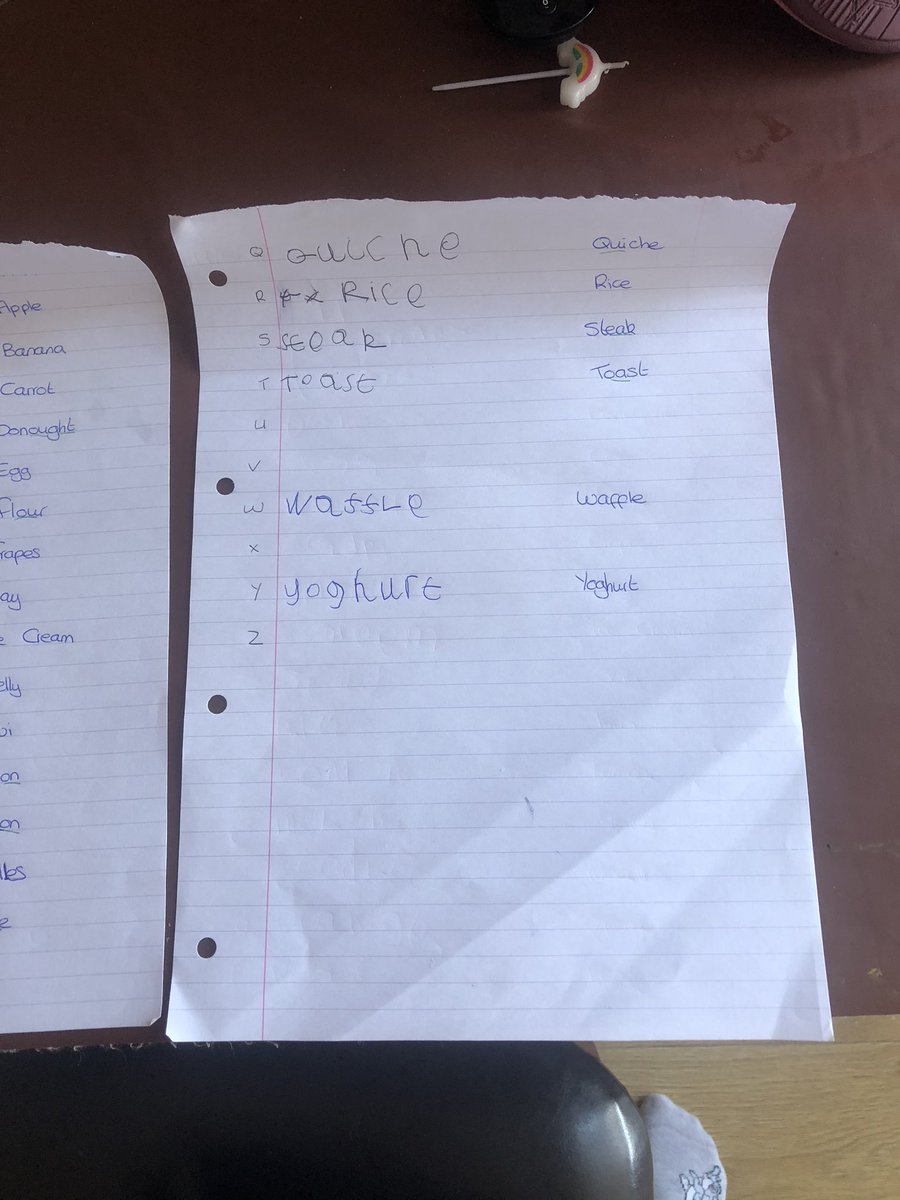 Apple
Banana
Carrot
Donought
Egg
Flour
rapes
ay
e Cream
elly
wi
on
on
lles
Q Quiche Quiche
R Rice Rice
S Steak Steak
T Toast Toast
U
V
W waffle Waffle
X
Y yoghurt Yoghurt
Z